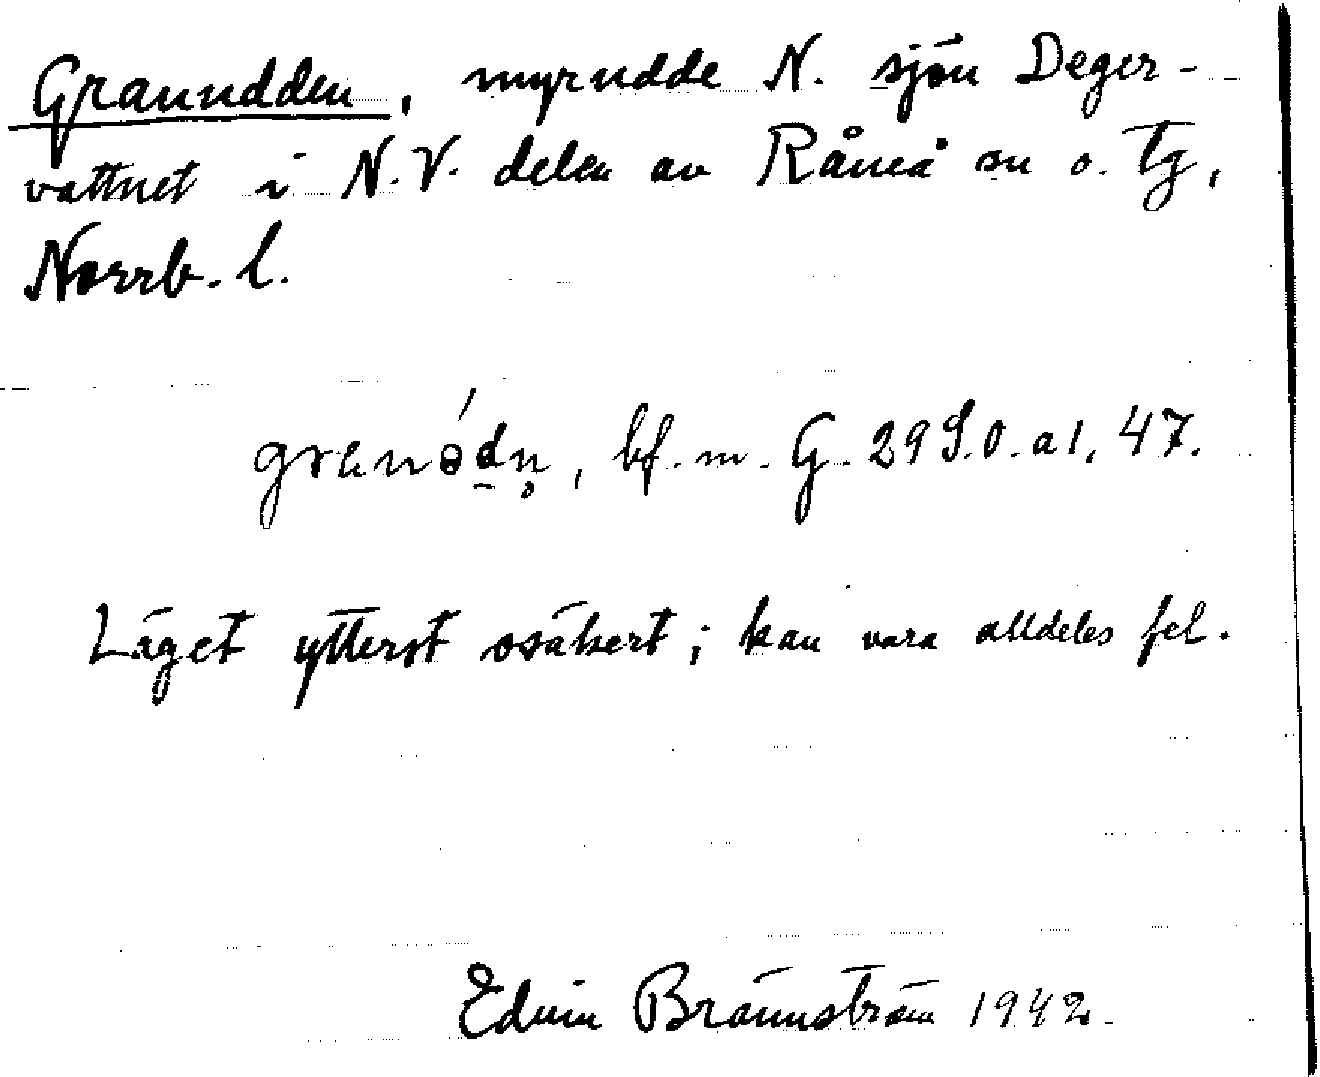 Granudden, myrudde N. sjön Deger-
vattnet i N.V. delen av Råneå sn o. tg,
Norrb. l.
granódn̥, bf. m. G. 29 S.O. a 1, 47.
Läget ytterst osäkert; kan vara alldeles fel.
Edvin Brännström 1942.